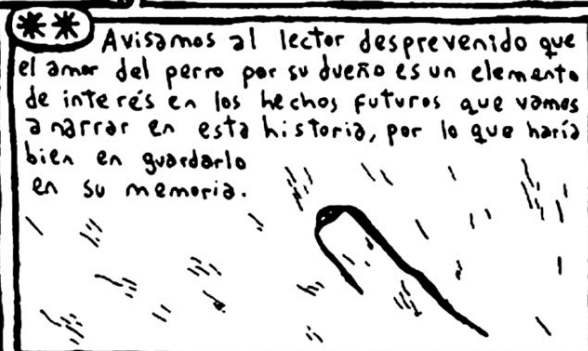 ** Avisamos al lector desprevenido que
el amor del perro por su dueño es un elemento
de interés en los hechos futuros que vamos
a narrar en esta historia, por lo que haría
bien en guardarlo
en su memoria.